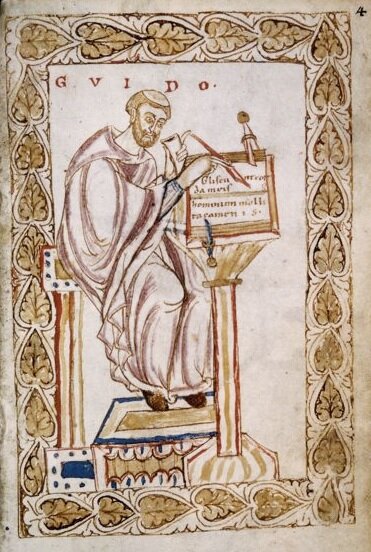 4
GVIDO.
Gliscu nt cor
da meis
hominum molli
ta camenis.